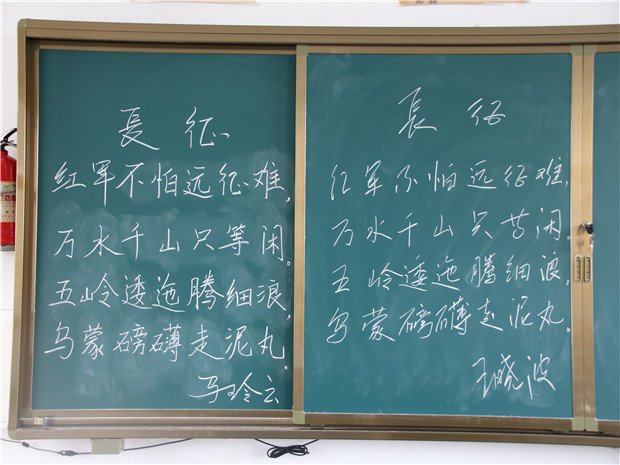 長征
红军不怕远征难，
万水千山只等闲。
五岭逶迤腾细浪，
乌蒙磅礴走泥丸。
马玲云
長征
红军不怕远征难，
万水千山只等闲。
五岭逶迤腾细浪，
乌蒙磅礴走泥丸。
王晓波